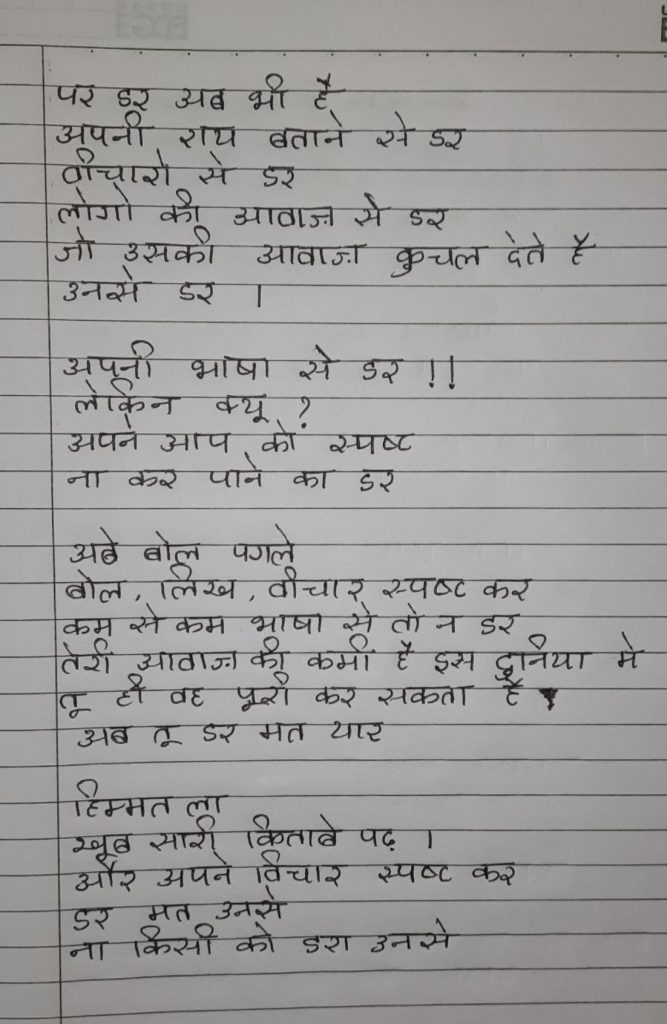 पर डर अब भी है
अपनी राय बताने से डर
वीचारो से डर
लोगो की आवाज़ से डर
जो उसकी आवाज़ कुचल देते है
उनसे डर ।
अपनी भाषा से डर !!
लेकिन क्यू ?
अपने आप को स्पष्ट
ना कर पाने का डर
अबे बोल पगले
बोल, लिख, वीचार स्पष्ट कर
कम से कम भाषा से तो न डर
तेरी आवाज़ की कमी है इस दुनिया मे
तू ही वह पूरी कर सकता है
अब तू डर मत यार
हिम्मत ला
खूब सारी किताबे पढ़ ।
और अपने विचार स्पष्ट कर
डर मत उनसे
ना किसी को डरा उनसे